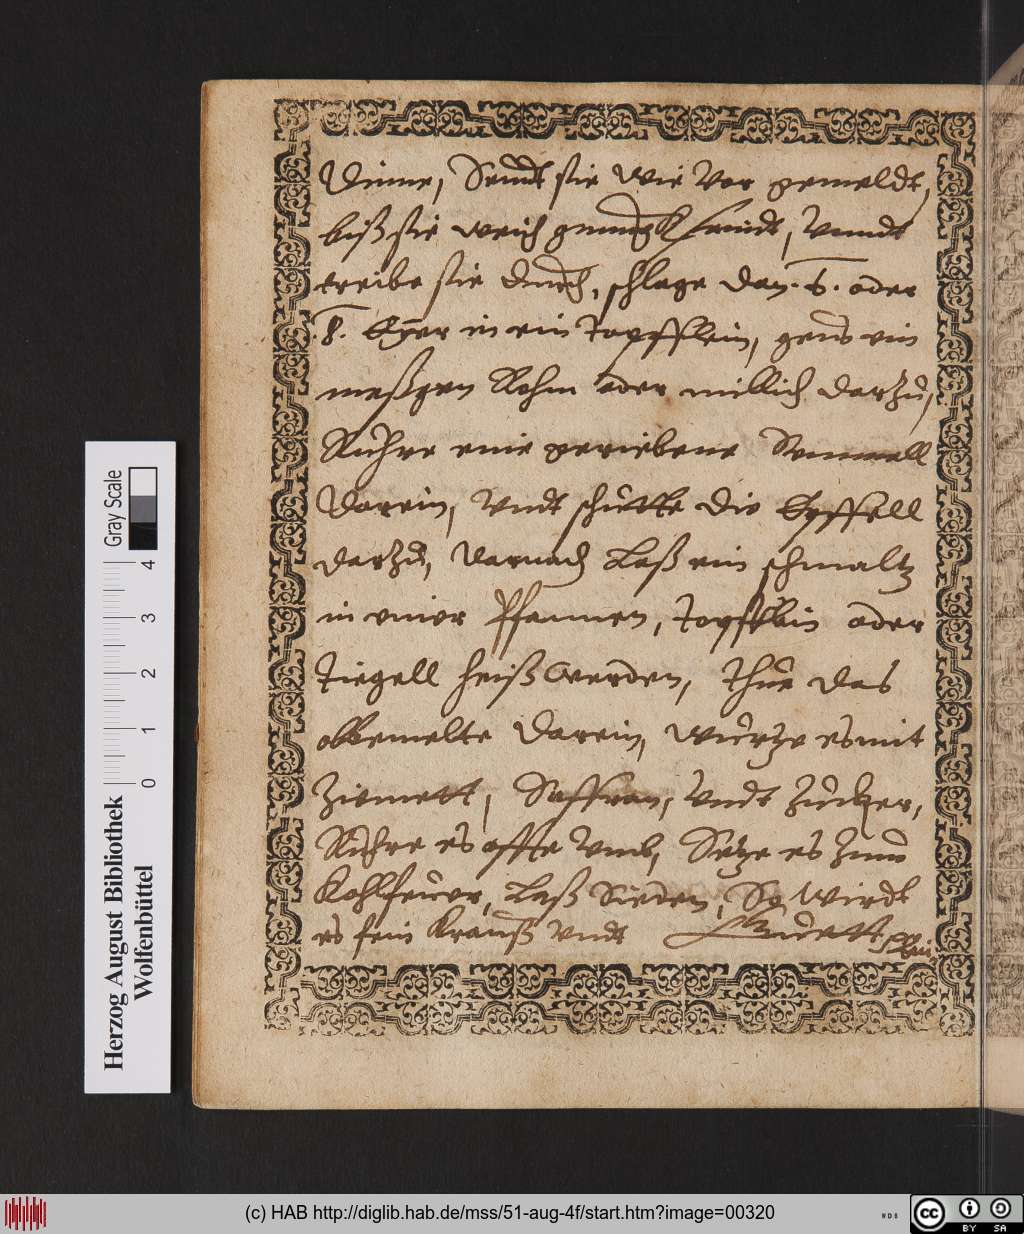 Dinne, Seudt sie wie Vor gemeldt,
biß sie weich genungk seindt, Vnndt
treibe sie durch, schlage dan .6. oder
.8. Eyer in ein Topfflein, geus ein
meßgen Rohm oder millich darzu,
Ruhre eine geriebene Semmell
darein, Vndt schutte die Epffell
darzu, darnach Laß ein schmaltz
in einer Pfannen, Topfflein oder
Tiegell heiß werden, thue das
obbemelte darein, wurtze es mit
Zimett, Saffran, Vndt Zucker,
Ruhre es offte Vmb, Setze es zum
Kohlfeuer, Laß Sieden, So wirdt
es fein Krauß Vndt
Herzog August Bibliothek
Wolfenbüttel
0 1 2 3 4
Gray Scale
(c) HAB http://diglib.hab.de/mss/51-aug-4f/start.htm?image=00320
WDB
cc BY SA